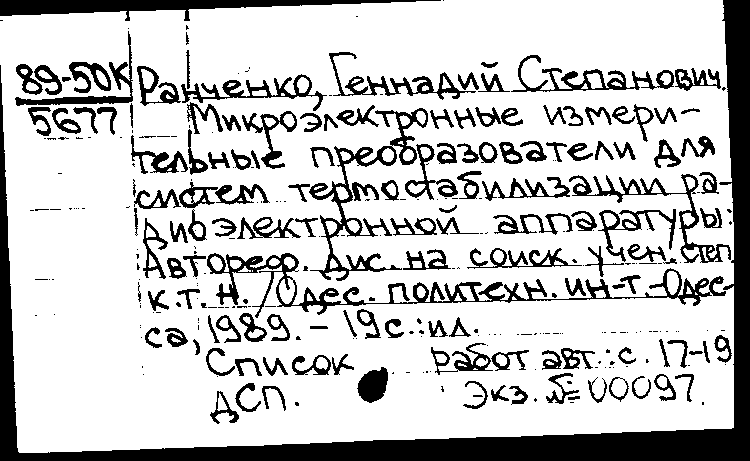 89-50К Ранченко, Геннадий Степанович.
5677 Микроэлектронные измери-
тельные преобразователи для
систем термостабилизации ра-
диоэлектронной аппаратуры:
Автореф. дис. на соиск. учен. степ.
к.т.н. / Одес. политехн. ин-т. - Одес-
са, 1989. - 19 с.: ил.
Список работ авт.: с. 17-19
ДСП. Экз. № 00097.